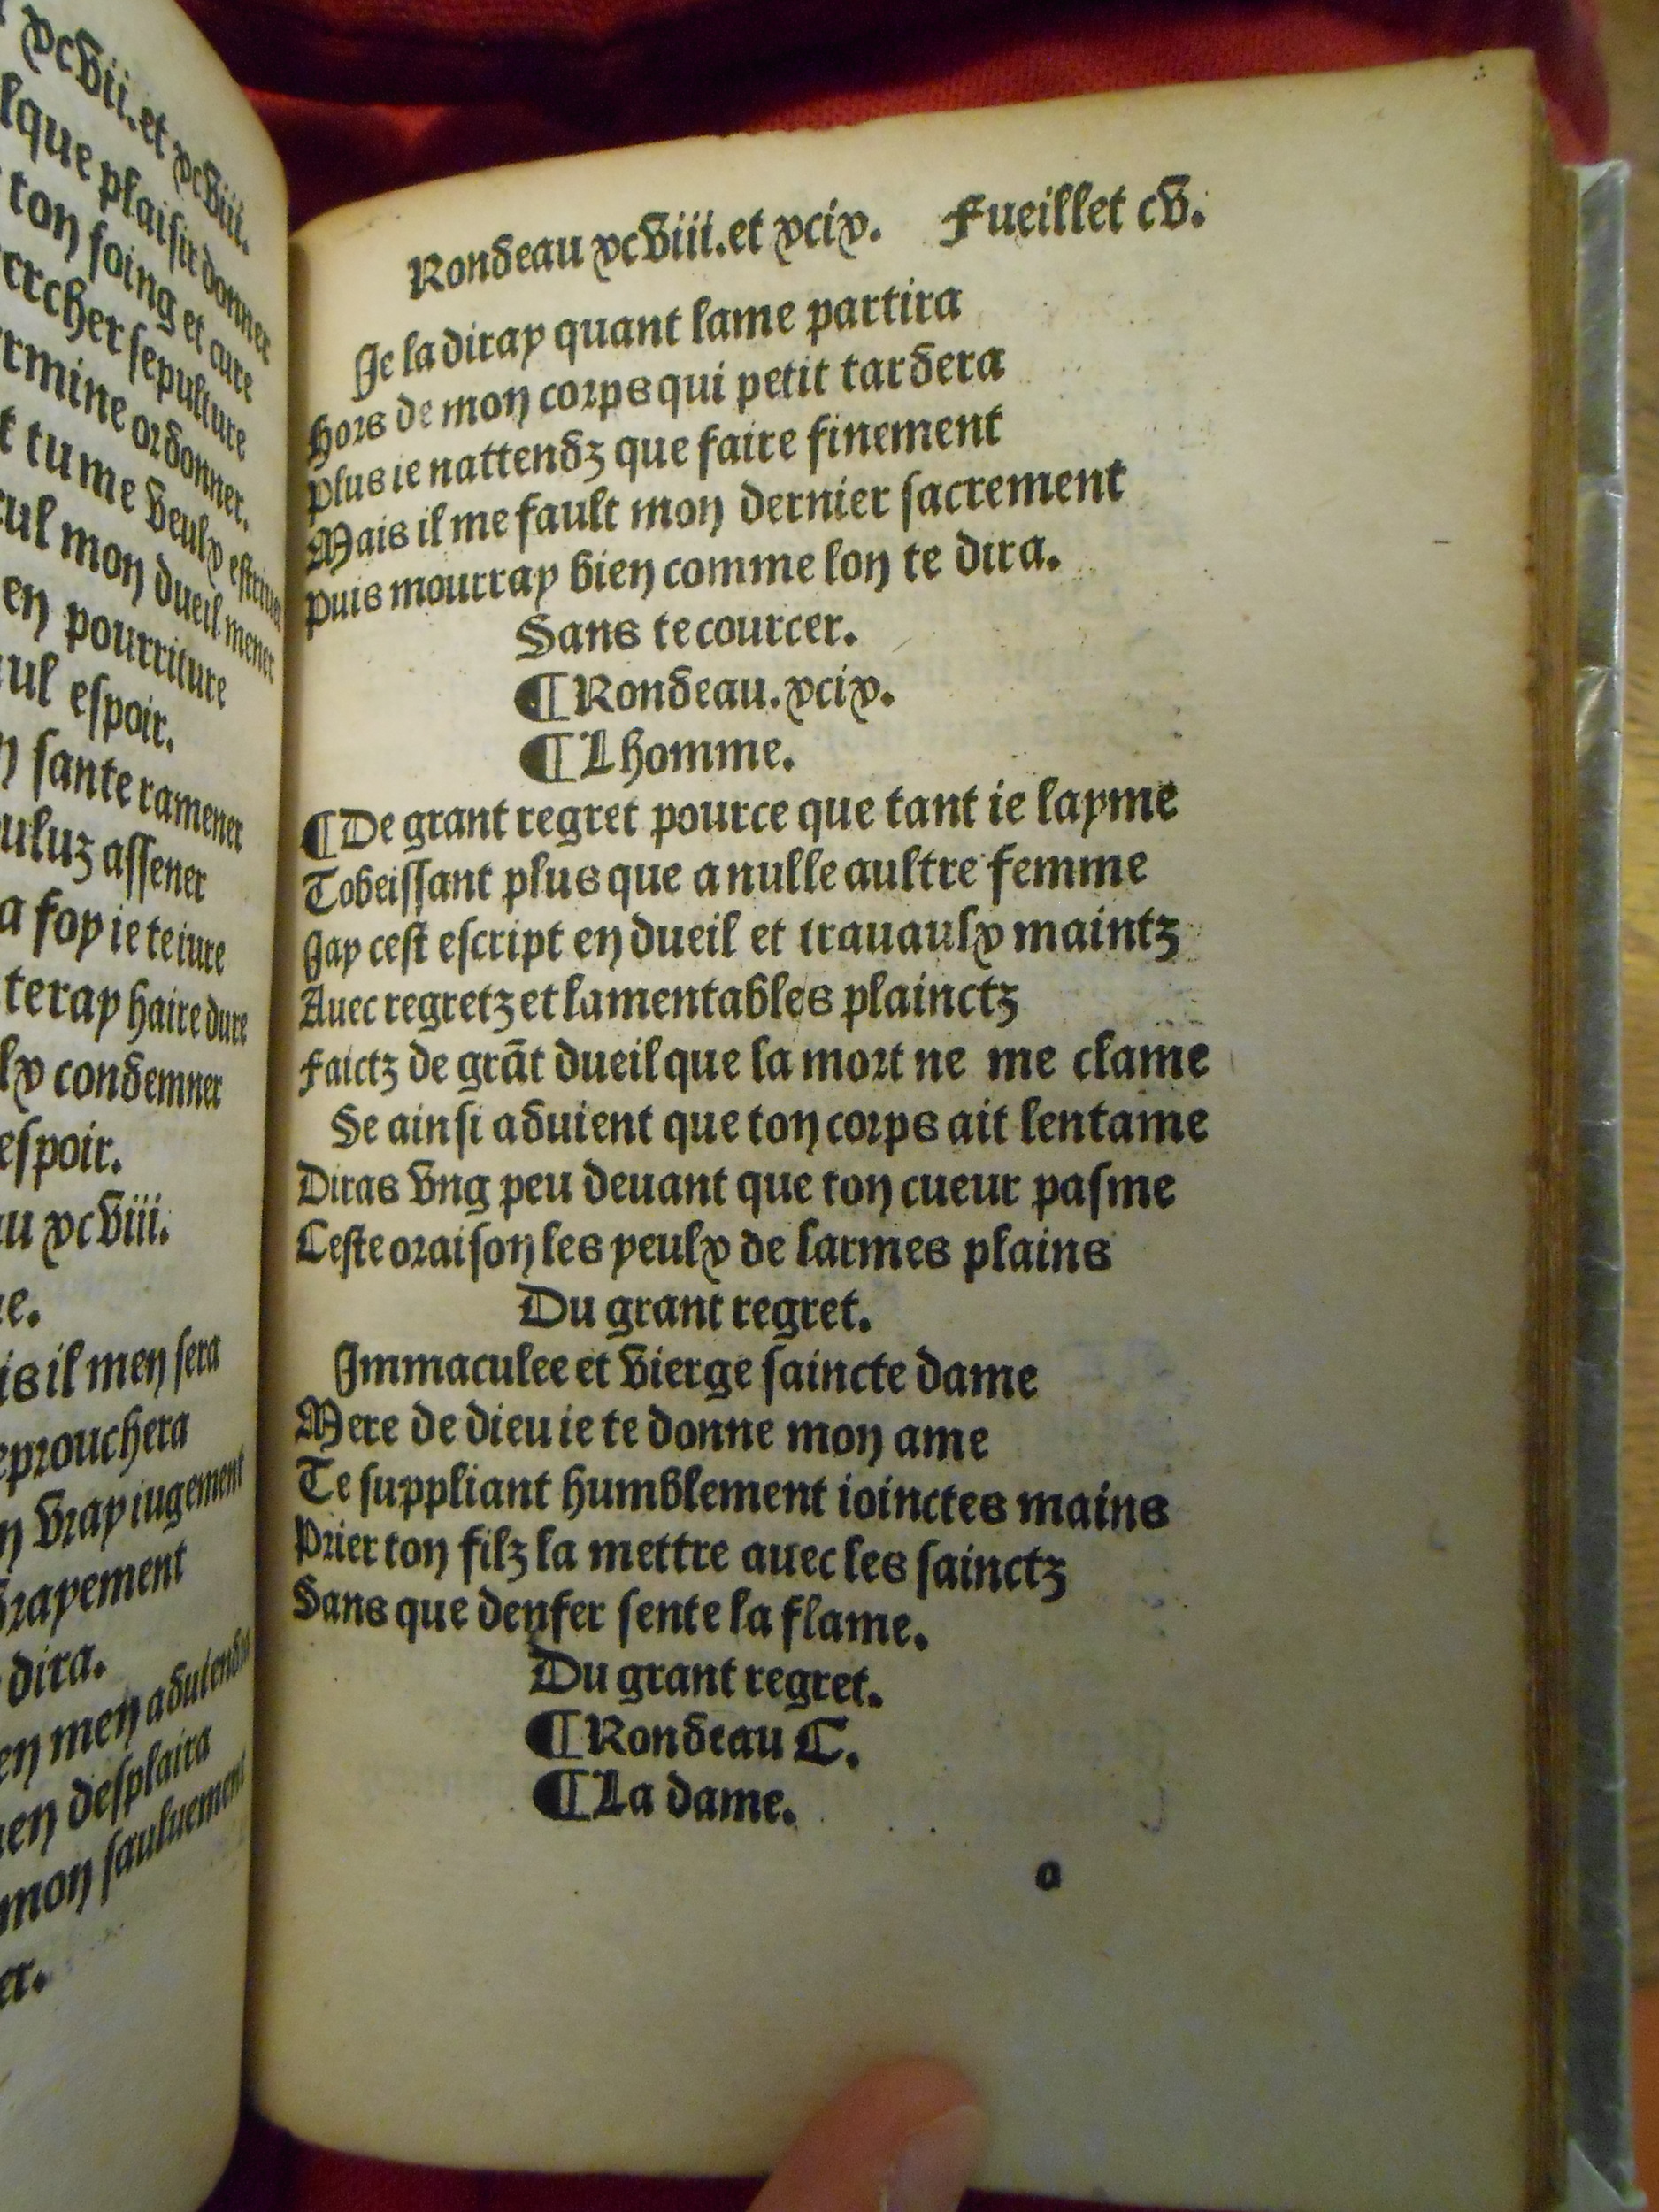 xcvii. et xcviii.
lque plaisir donner
ton soing et cure
rrcher sepulture
rmine ordonner.
t tu me veulx estriuer
ul mon dueil mener
en pourriture
ul espoir.
sante ramener
uluz assener
a foy ie te iure
teray haire dure
lx condemner
espoir.
u xcviii.
e.
is il men sera
eprouchera
n vray iugement
vrayement
dira.
en men aduiendra
en desplaira
mon sauluement
er.
Rondeau xcviii. et xcix. Fueillet cv.
Je la diray quant lame partira
Hors de mon corps qui petit tardera
Plus ie nattendz que faire finement
Mais il me fault mon dernier sacrement
Puis mourray bien comme lon te dira.
Sans te courcer.
¶ Rondeau. xcix.
¶ Lhomme.
¶ De grant regret pource que tant ie layme
Tobeissant plus que a nulle aultre femme
Jay cest escript en dueil et trauaulx maintz
Auec regretz et lamentables plainctz
Faictz de grãt dueil que la mort ne me clame
Se ainsi aduient que ton corps ait lentame
Diras vng peu deuant que ton cueur pasme
Ceste oraison les yeulx de larmes plains
Du grant regret.
Immaculee et vierge saincte dame
Mere de dieu ie te donne mon ame
Te suppliant humblement ioinctes mains
Prier ton filz la mettre auec les sainctz
Sans que denfer sente la flame.
Du grant regret.
¶ Rondeau C.
¶ La dame.
o